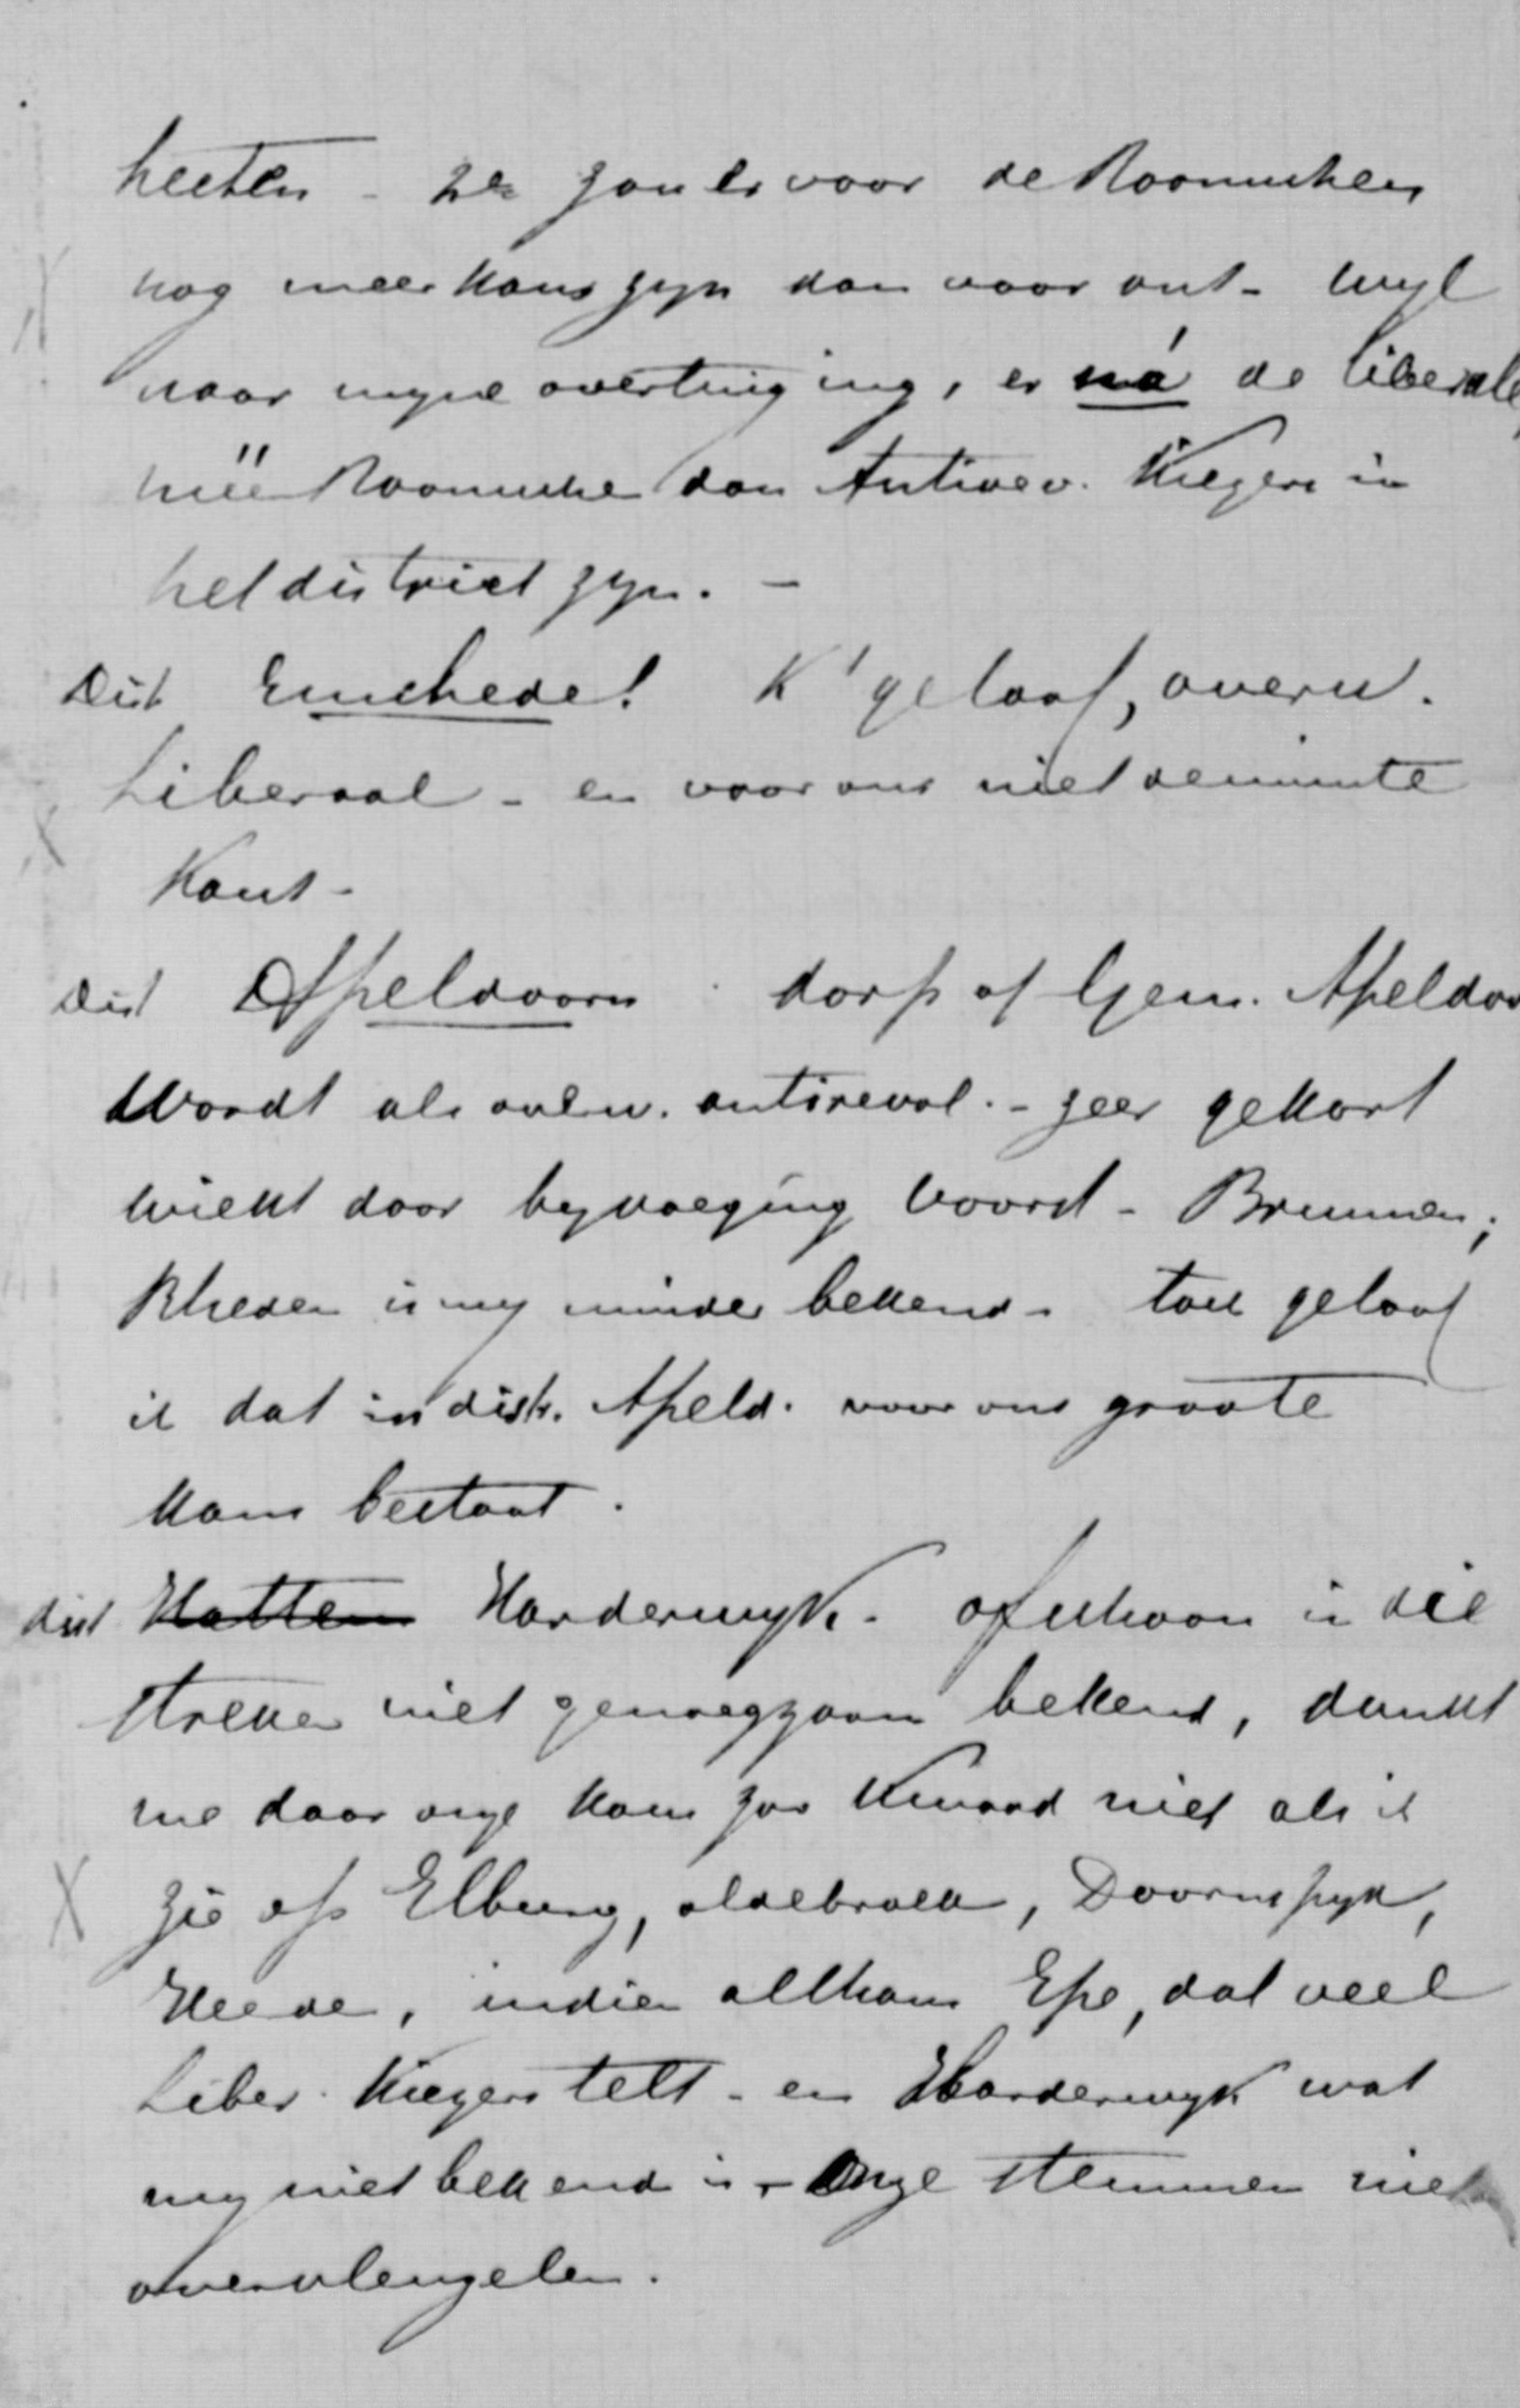 heeten - zoo zou er voor de Roomschen
nog meer kans zyn dan voor ons - wyl
naar myne overtuiging, er ná de liberale
méér Roomsche dan Antirev. Kiezers in
het district zyn. -
Dist Enschede! K' geloof, overw.
Liberaal - en voor ons niet de minste
Kans -
Dist Apeldoorn dorp of Gem. Apeldoo
Wordt als overw. antirevol. - zeer gekort
wiekt door byvoeging Voorst - Brummen;
Rheden is my minder bekend - toch geloof
ik dat in distr. Apeld. voor ons groote
kans bestaat.
dist Hattem Harderwyk - ofschoon in die
streken niet genoegzaam bekend, dunkt
me daar onze kans zoo kwaad niet als ik
zie op Elburg, oldebroek, Doornspyk,
Heerde, indien althans Epe, dat veel
Liber. Kiezers telt - en Harderwyk wat
my niet bekend is - Onze stemmen niet
overvleugelen.